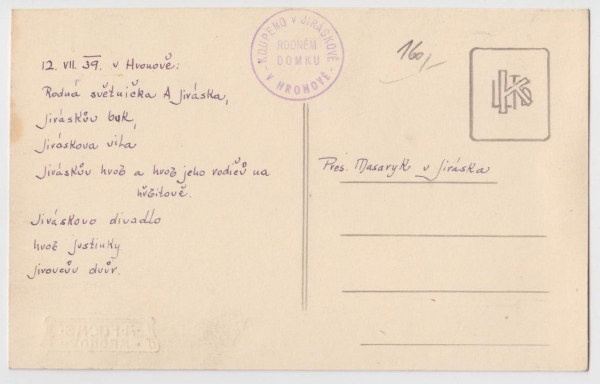 12. VII. 39. v Hronově:
Rodná světnička A Jiráska,
Jiráskův buk,
Jiráskova vila
Jiráskův hrob a hrob jeho rodičů na
hřbitově.
Jiráskovo divadlo
hrob Justinky
Jiroucův dvůr.
KOUPENO V JIRÁSKOVĚ
RODNÉM
DOMKU
V HRONOVĚ
160/-
Pres. Masaryk u Jiráska